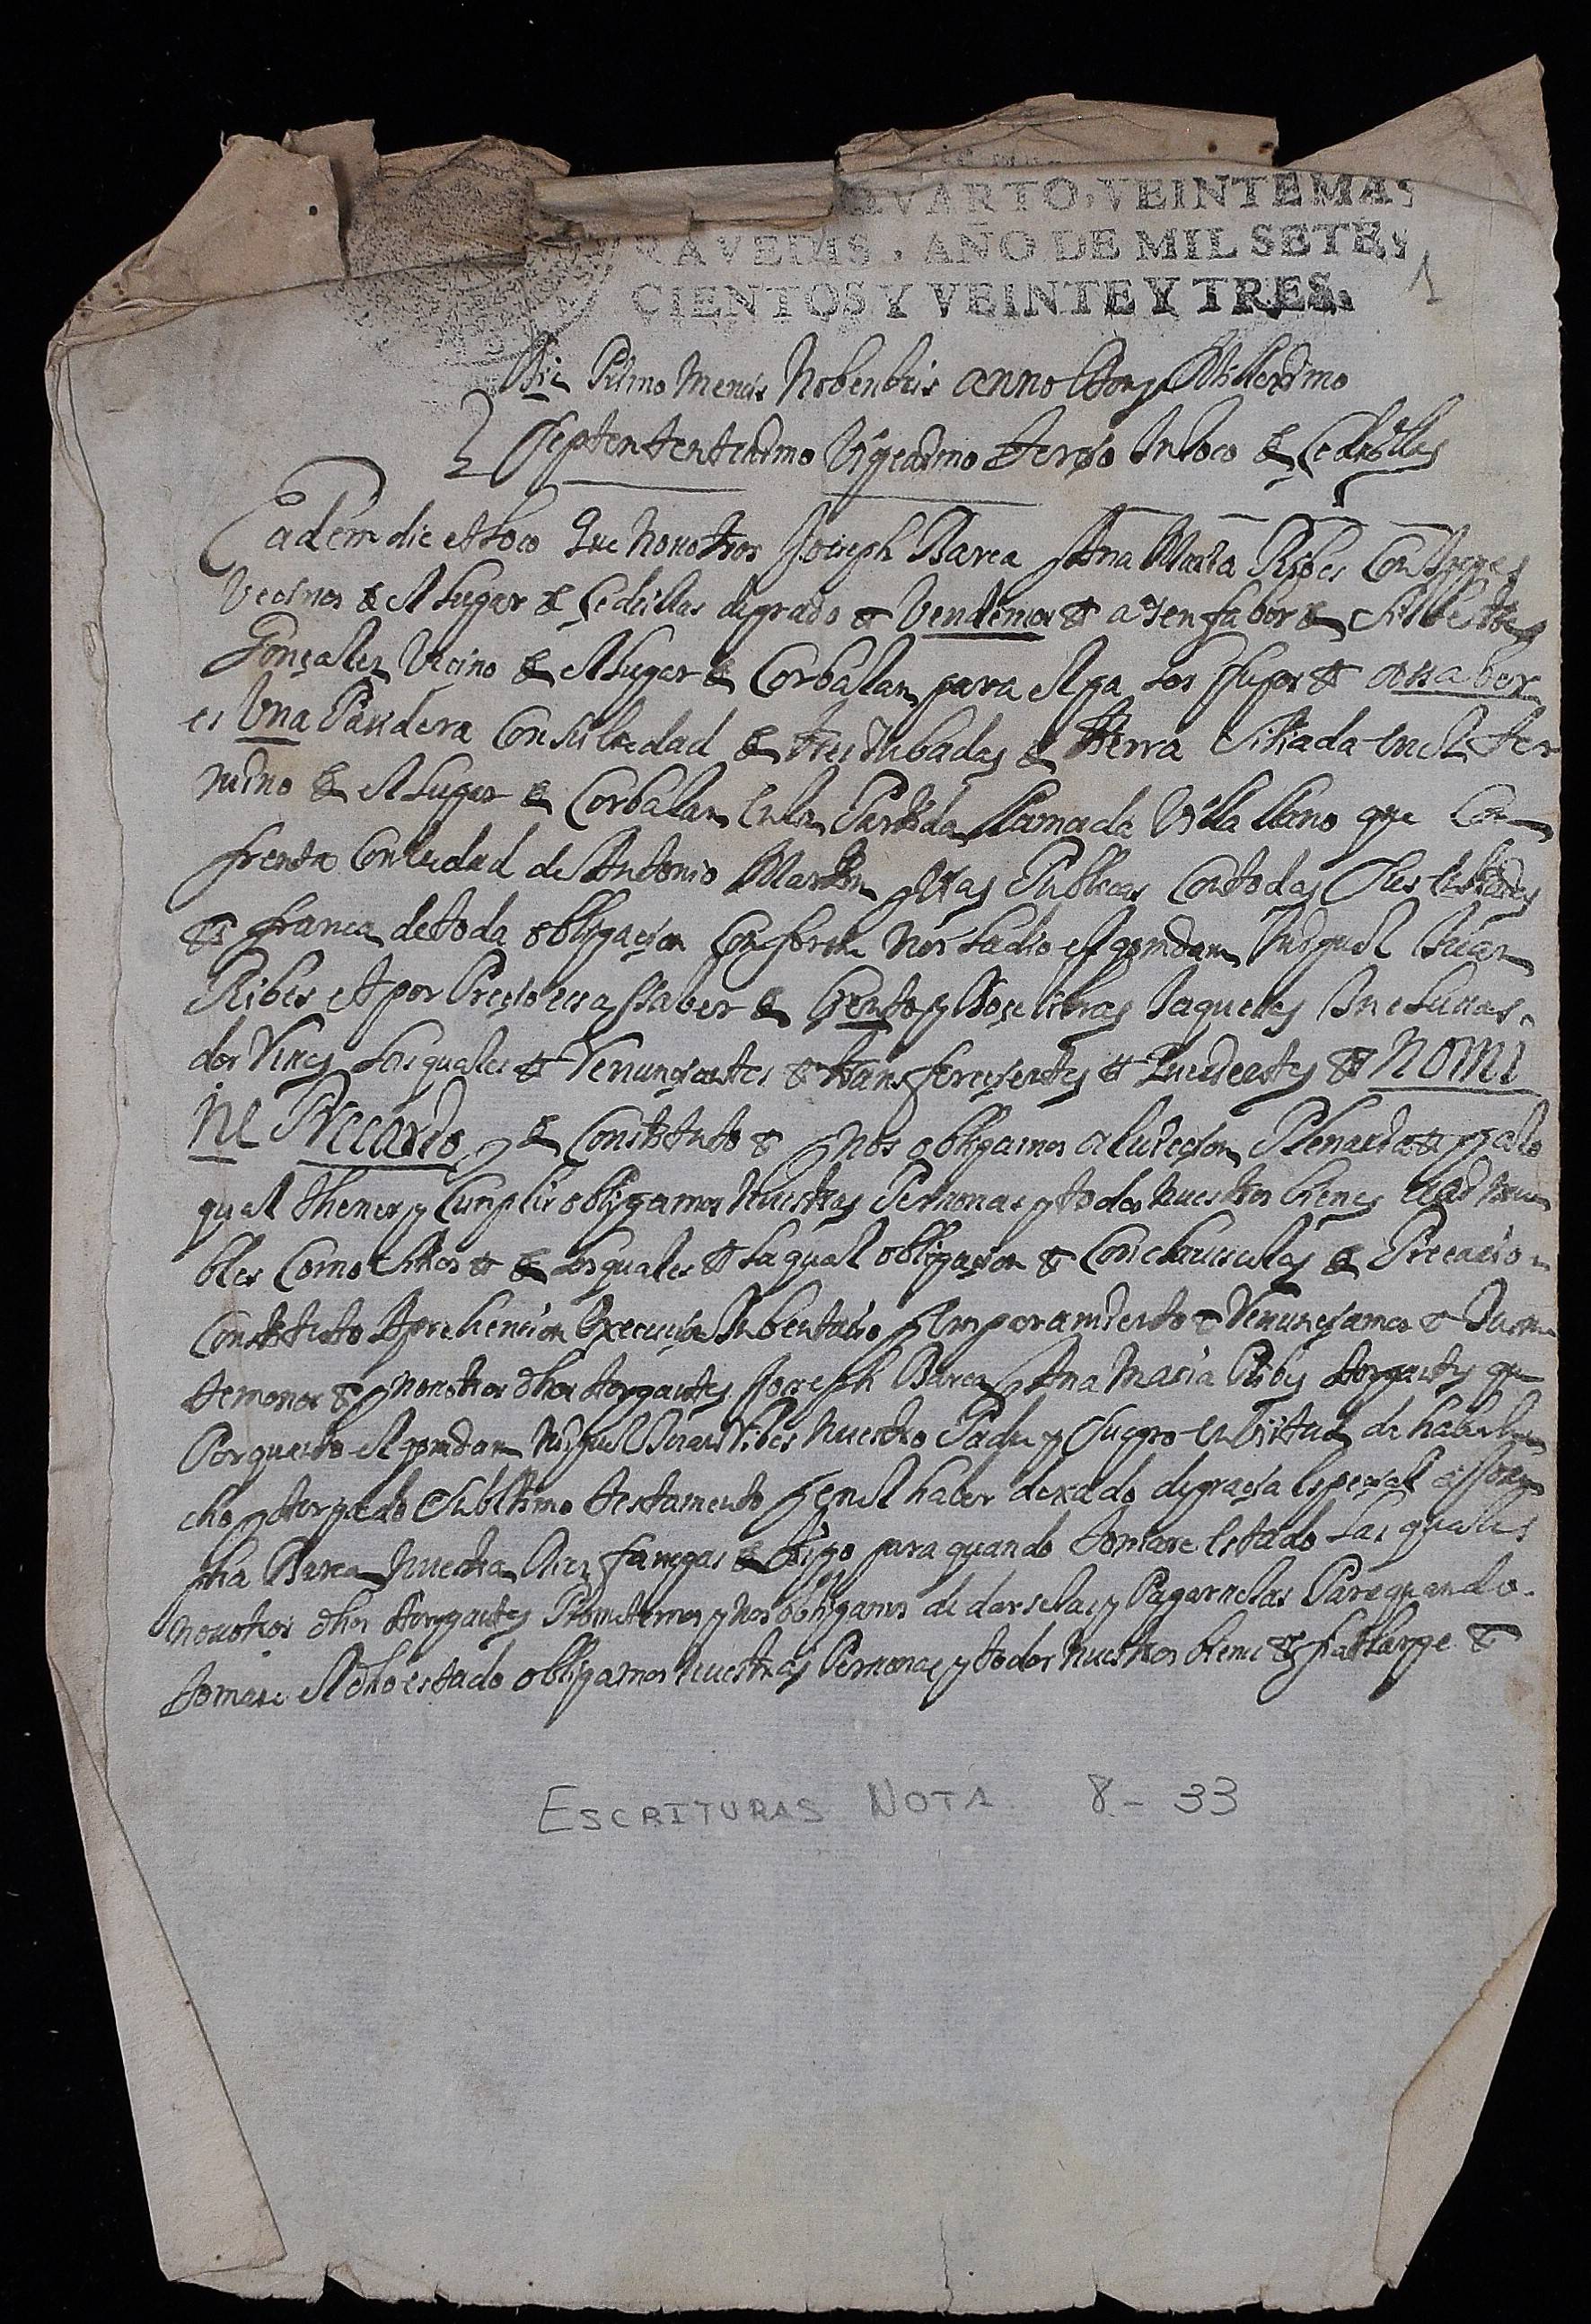 QVARTO, VEINTE MA
RAVEDIS, AÑO DE MIL SETE
CIENTOS Y VEINTE Y TRES.
1
Die Primo Mensis Nobenbris anno Millessimo
septentessimo Vigessimo tersio In loco de Cedrillas
Eadem die et loco Que Nosotros Joseph Barea y Ana Maria Ribes Conyuges
Vecinos de el Lugar de Cedrillas de grado & Vendemos & a y en fabor de
Gonçalez Vecino de el Lugar de Corbalan para el y a los suyos & assaber
es Una Paridera Con su heredad de tres Jubadas de tierra sitiada en el ter
mino de el Lugar de Corbalan en la Partida llamada Villa llano que Con
frenta Con heredad de Antonio Martin y Vias Publicas Con todas
& franca de toda obligacion Conforme nos la dio el qondam Miguel Juan
Ribes et por Precio es a ssaber de Ciento y Doçe libras Jaquesas
dos Veces Las quales & Renunciantes & transferecientes & Querientes & NOMI
NE Precario, & Constituto & y nos obligamos a Eviccion Plenaria & y a lo
qual thener y Cumplir obligamos Nuestras Personas y todos nuestros bienes assi mue
bles Como sitios & de Los quales & La qual obligacion & Con clausulas de Precario
Constituto Aprehension Execucion Inbentario y Emparamiento & Renunciamos &
temonos & y nosotros dhos otorgantes Joseph Barea y Ana Maria Ribes otorgantes que
Por quanto el qondam Miguel Juan Ribes Nuestro Padre y Suegro en Virtud de haber he
cho y otorgado su Ultimo testamento y en el haber dexado de gracia especial a
pha Barea Nuestra Diez fanegas de trigo para quando tomare estado Las quales
nosotros dhos otorgantes Prometemos y nos obligamos de darselas y Pagarselas Para quando
tomare el dho estado obligamos nuestras Personas y todos Nuestros bienes & fiat large &
ESCRITURAS NOTA 8 - 33